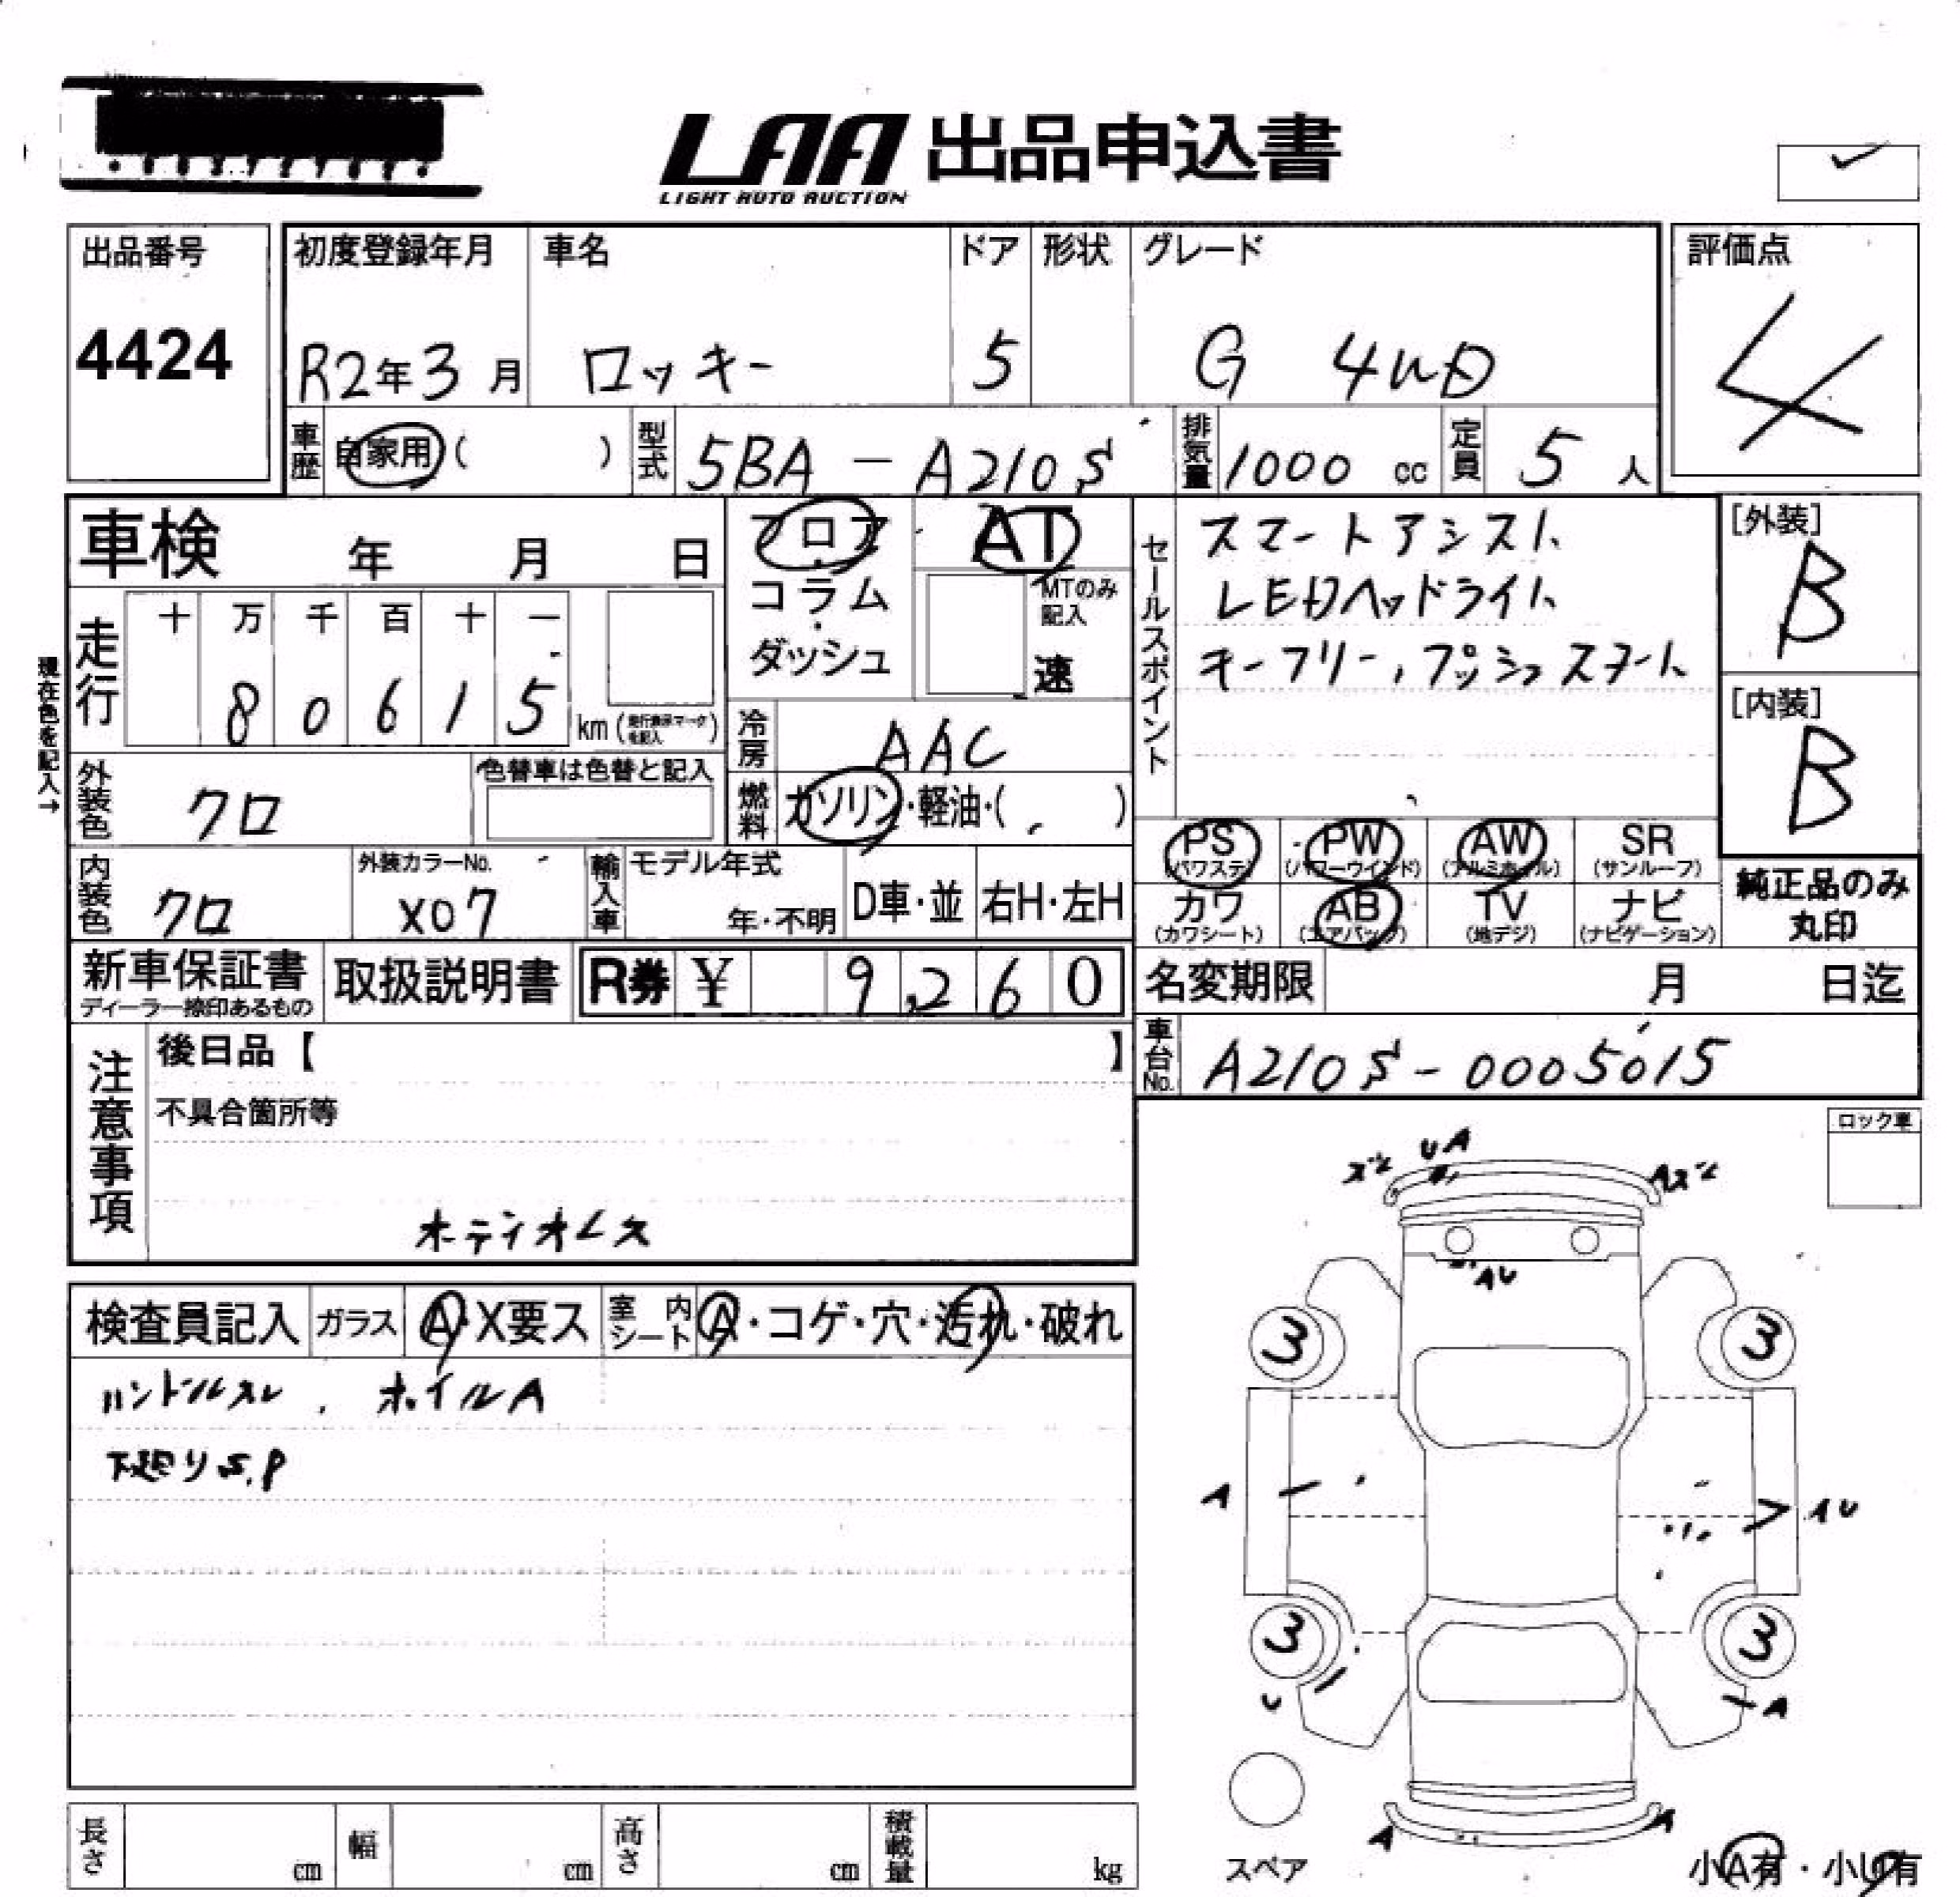 LAA 出品申込書
LIGHT AUTO AUCTION
出品番号
4424
初度登録年月 車名 ドア 形状 グレード
R2年3月 ロッキー 5 G 4WD
評価点
4
車歴 自家用( ) 型式 5BA-A210S 排気量 1000 cc 定員 5 人
車検 年 月 日
フロア・コラム・ダッシュ
AT
MTのみ記入
速
走行 十 万 千 百 十 一
8 0 6 1 5 km(走行表示マークを記入)
現在色を記入→
冷房 AAC
燃料 ガソリン・軽油・( )
外装色 クロ
色替車は色替と記入
内装色 クロ 外装カラーNo. X07
輸入車 モデル年式 年・不明 D車・並 右H・左H
セールスポイント
スマートアシスト
LEDヘッドライト
キーフリー,プッシュスタート
[外装]
B
[内装]
B
PS(パワステ) PW(パワーウインド) AW(アルミホイル) SR(サンルーフ)
カワ(カワシート) AB(エアバッグ) TV(地デジ) ナビ(ナビゲーション)
純正品のみ丸印
新車保証書 ディーラー捺印あるもの 取扱説明書 R券 ¥ 9,260
名変期限 月 日迄
車台No. A210S-0005015
注意事項
後日品【 】
不具合箇所等
ホディオレス
検査員記入 ガラス A・X要ス 室内シート A・コゲ・穴・汚れ・破れ
ハンドルスレ, ホイルA
下廻りS,P
ロック車
ズレ UA Aズレ
AU
3 3
A AU
3 3
U A
A A
スペア
小A有・小U有
長さ cm 幅 cm 高さ cm 積載量 kg